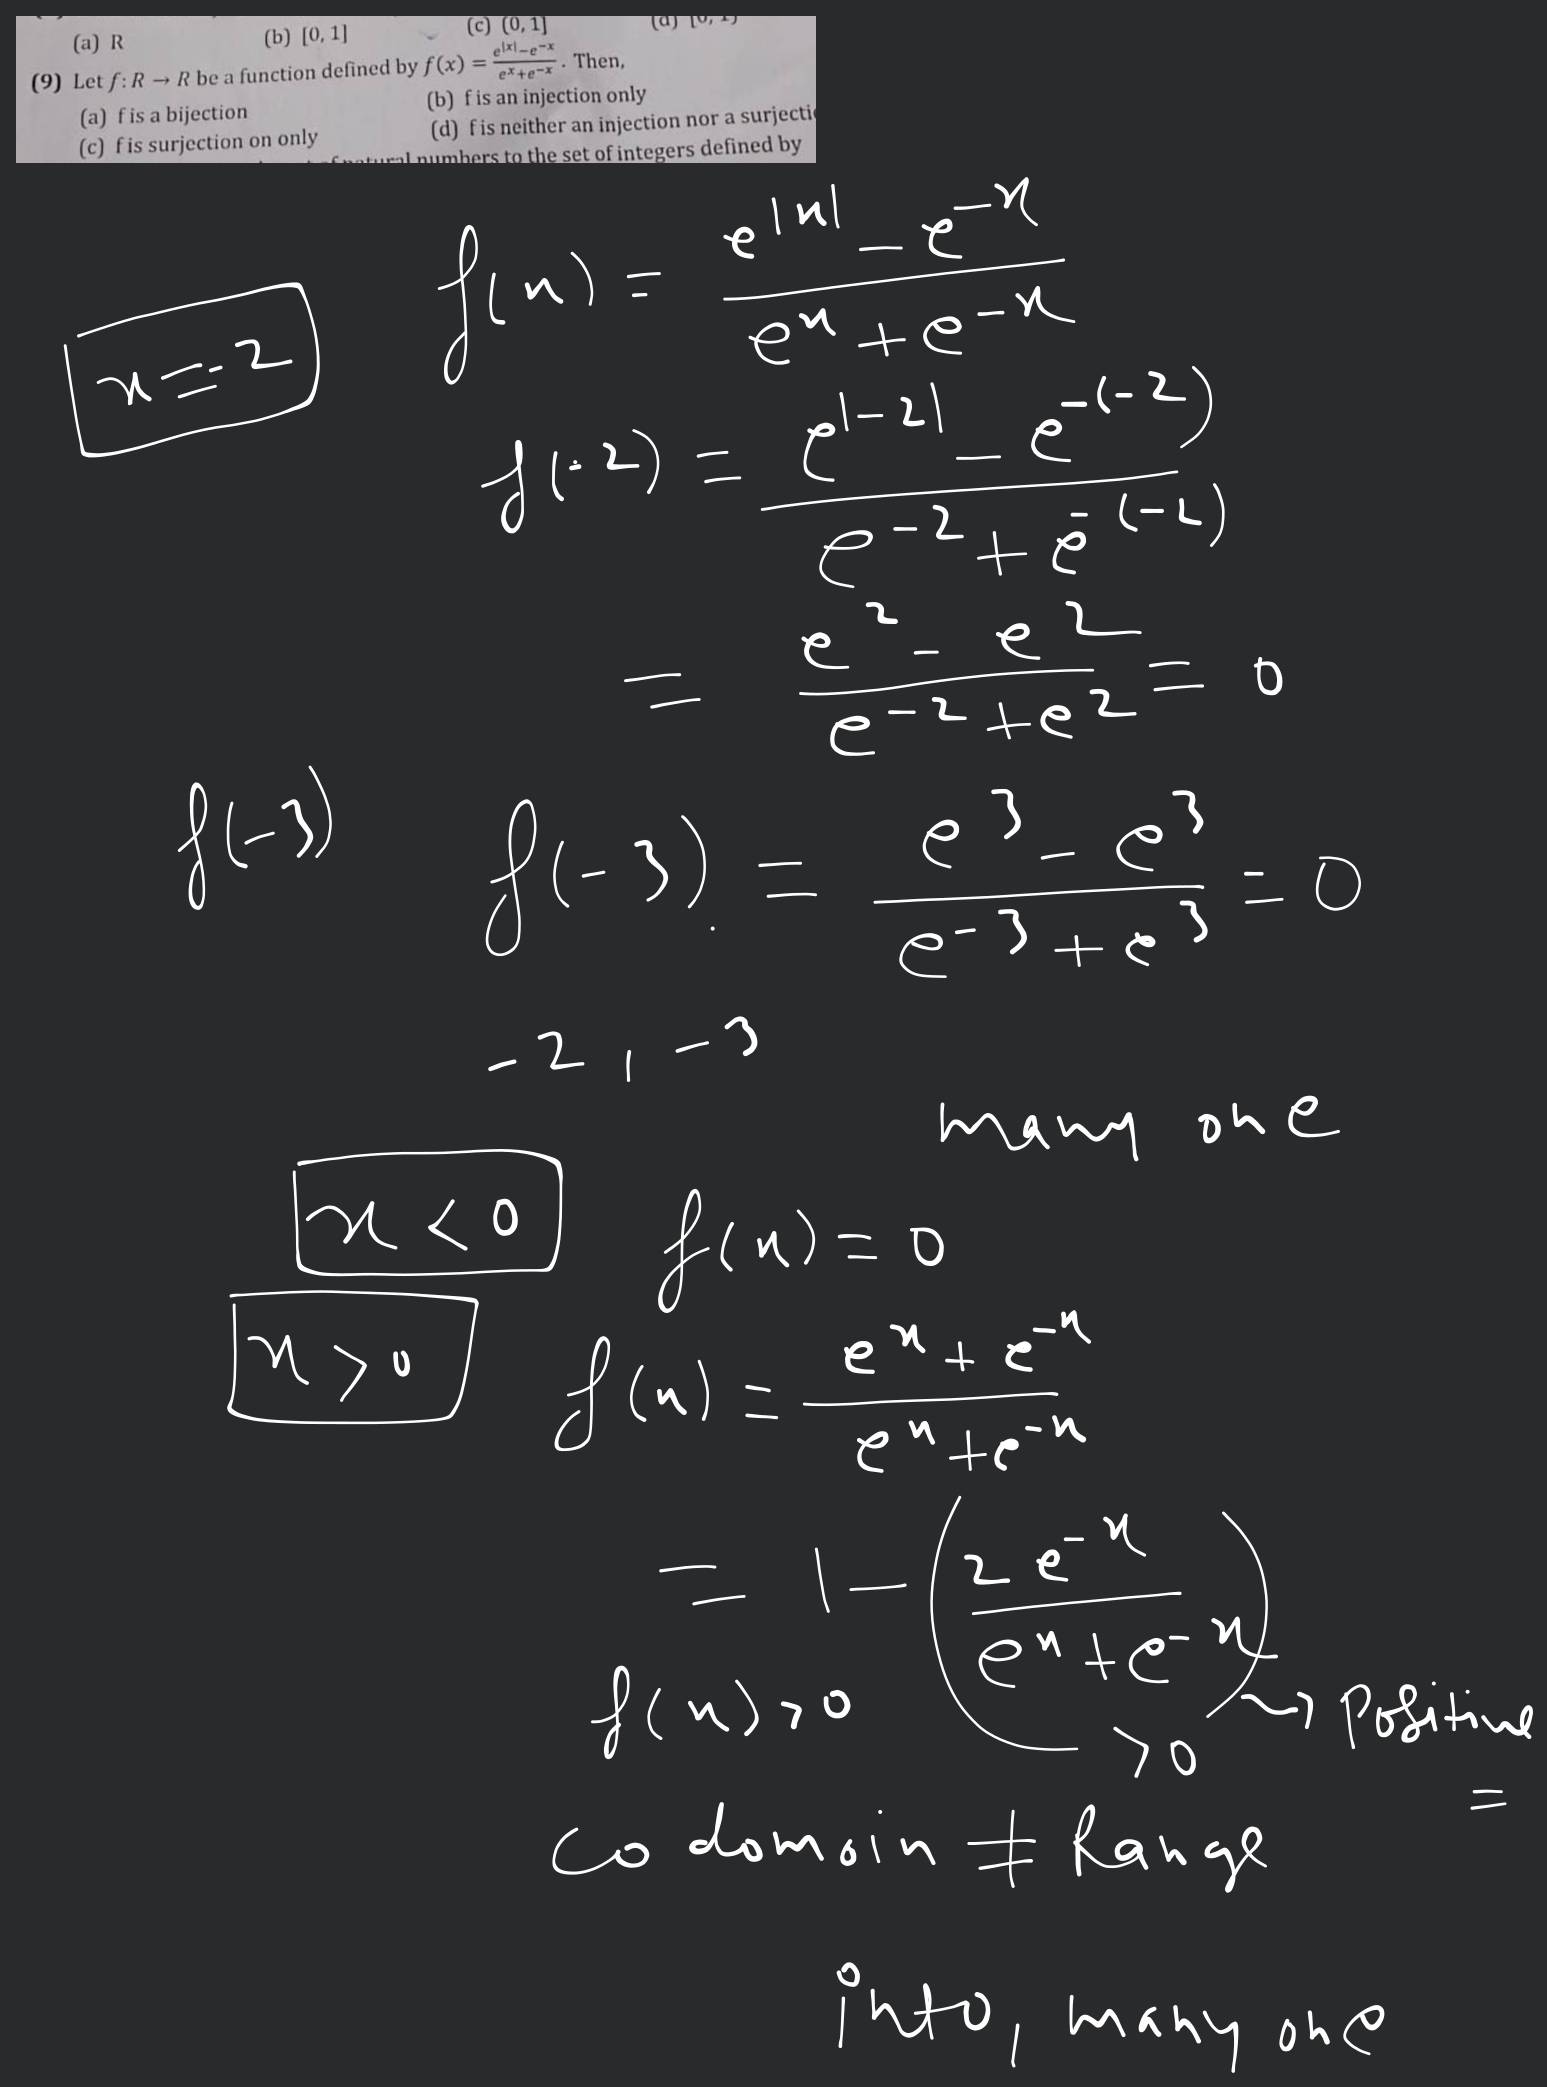 (a) R (b) [0, 1] (c) (0, 1] (d) [0, 1)
(9) Let f: R → R be a function defined by f(x) = (e^|x| − e^−x)/(e^x + e^−x). Then,
(a) f is a bijection (b) f is an injection only
(c) f is surjection on only (d) f is neither an injection nor a surjecti
of natural numbers to the set of integers defined by
f(x) = (e^|x| − e^−x)/(e^x + e^−x)
x = -2
f(-2) = (e^|-2| − e^−(-2))/(e^−2 + e^−(-2))
= (e^2 − e^2)/(e^−2 + e^2) = 0
f(-3) f(-3) = (e^3 − e^3)/(e^−3 + e^3) = 0
-2, -3
many one
x < 0 f(x) = 0
x > 0 f(x) = (e^x + e^−x)/(e^x + e^−x)
= 1 − (2e^−x/(e^x + e^−x)) → Positive
f(x) > 0 > 0 =
Co domain ≠ Range
into, many one